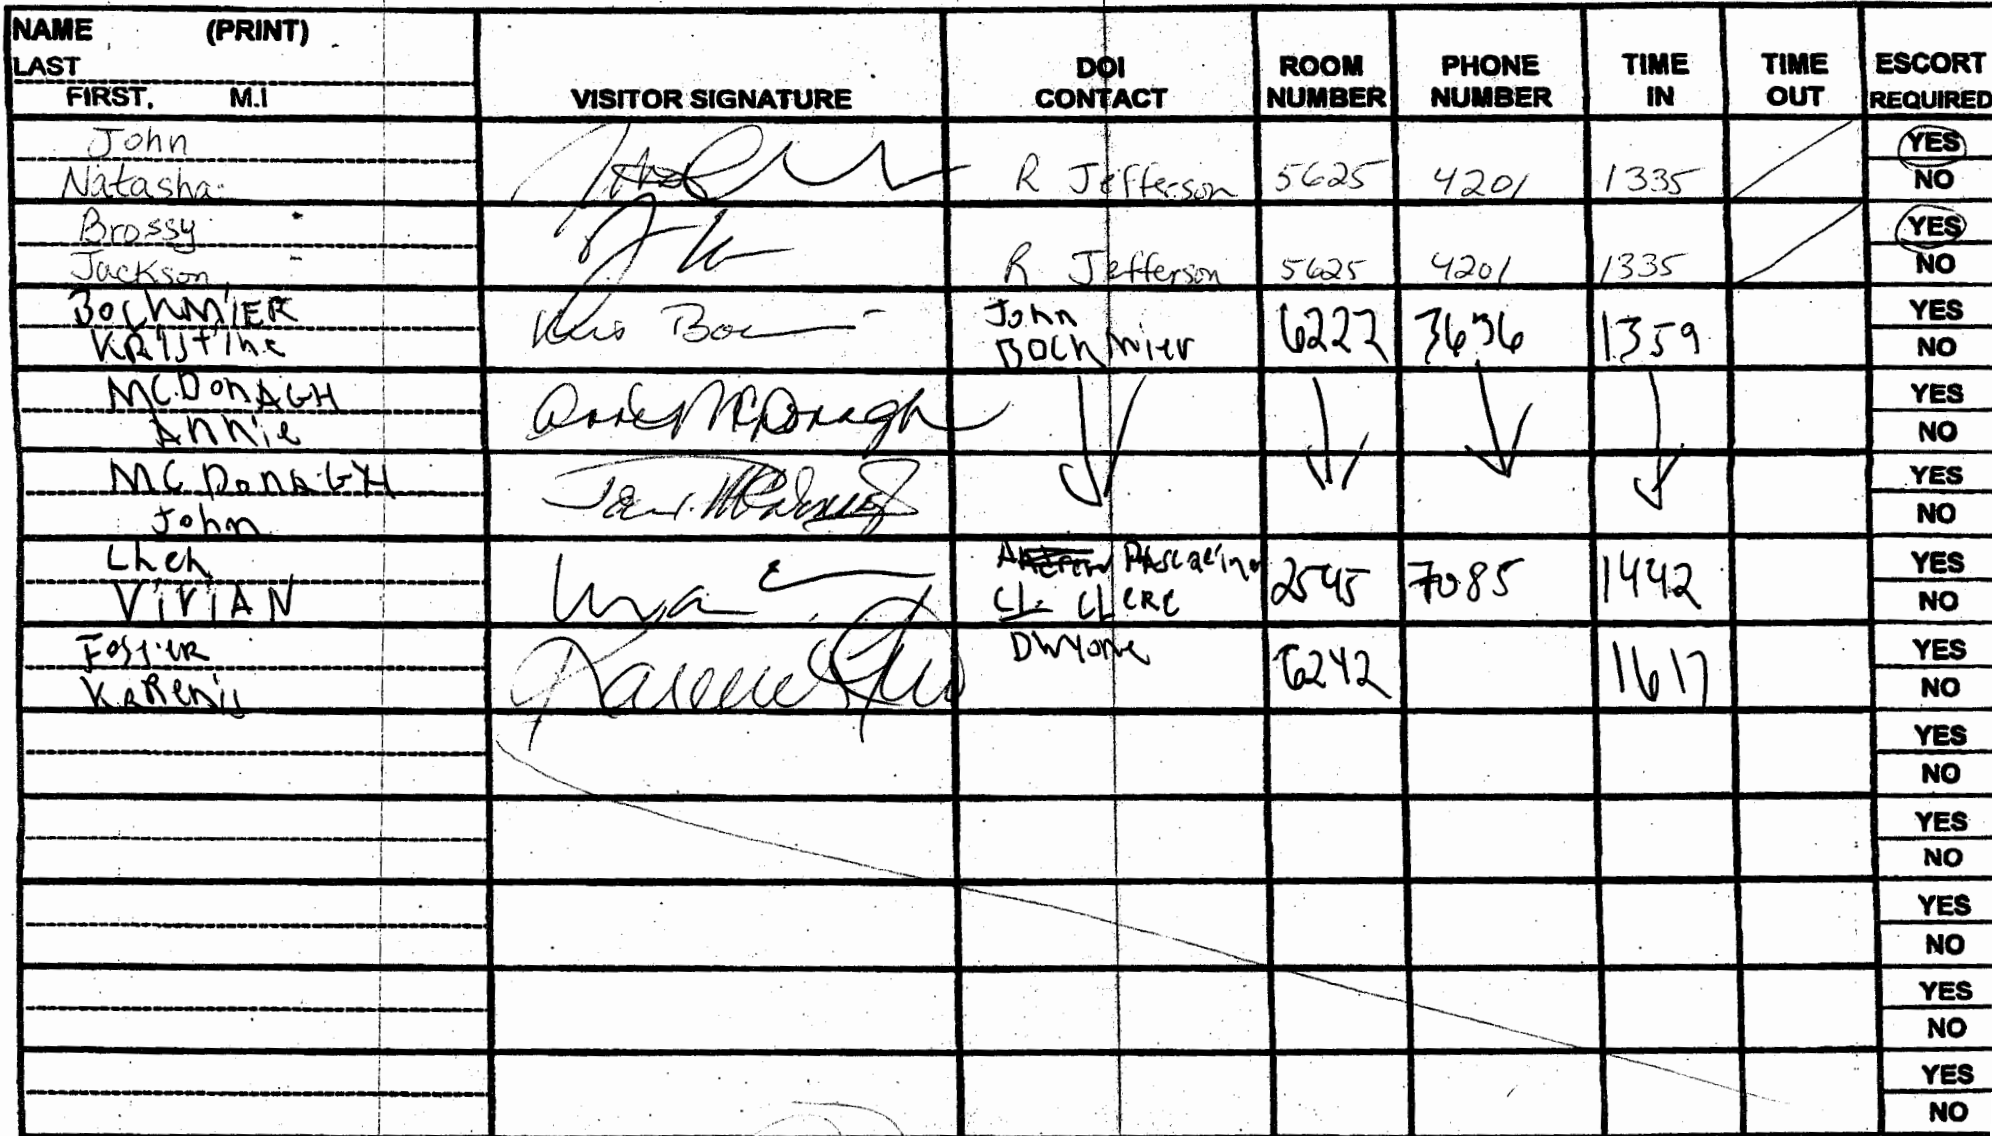 NAME (PRINT)
LAST
FIRST, M.I
VISITOR SIGNATURE
DOI CONTACT
ROOM NUMBER
PHONE NUMBER
TIME IN
TIME OUT
ESCORT REQUIRED
John
Natasha
R Jefferson 5625 4201 1335
YES
NO
Brossy
Jackson
R Jefferson 5625 4201 1335
YES
NO
BOCHMIER
KRistine
Kris
John
BOCHmier
6222 3636 1359
YES
NO
MCDonAGH
Annie
Anne McDonagh
YES
NO
MCDonAGH
John
YES
NO
Chen
ViViAN
CLERC
2545 7085 1442
YES
NO
Foster
Dwyone
6242 1617
YES
NO
YES
NO
YES
NO
YES
NO
YES
NO
YES
NO